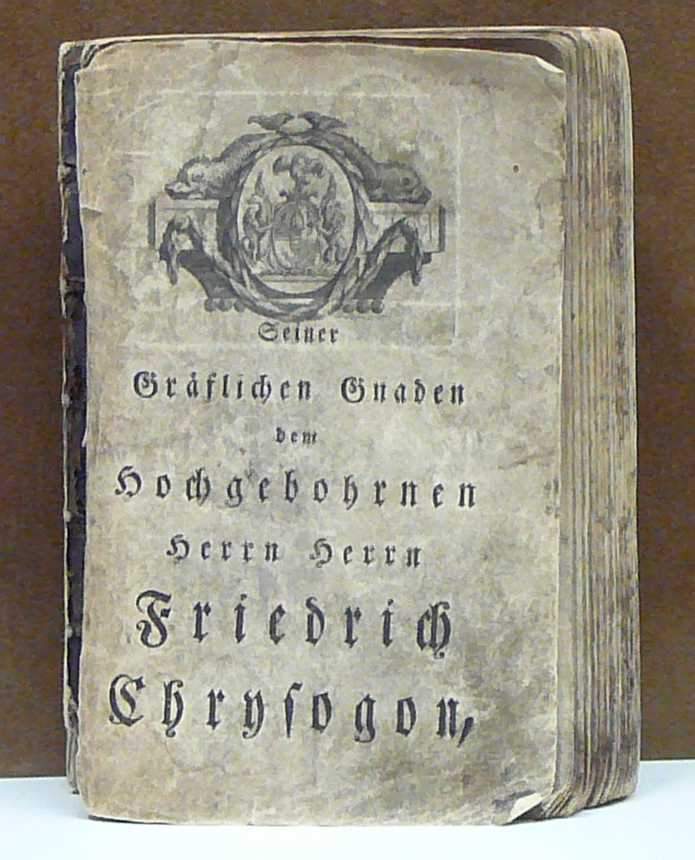 Seiner
Gräflichen Gnaden
dem
Hochgebohrnen
Herrn Herrn
Friedrich
Chryſogon,